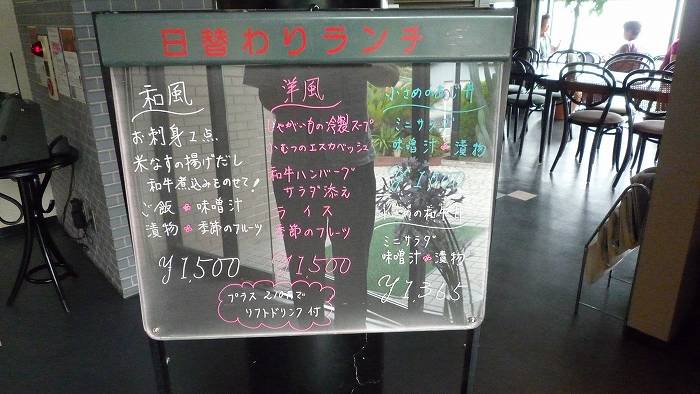 日替わりランチ
和風
お刺身2点
米なすの揚げだし
和牛煮込みをのせて!
ご飯 味噌汁
漬物 季節のフルーツ
¥1,500
洋風
じゃがいもの冷製スープ
いむつのエスカベッシュ
和牛ハンバーグ
サラダ添え
ライス
季節のフルーツ
¥1,500
プラス210円で
ソフトドリンク付
小さめの
ミニサラダ
味噌汁 漬物
ミニサラダ
味噌汁 漬物
¥1,365